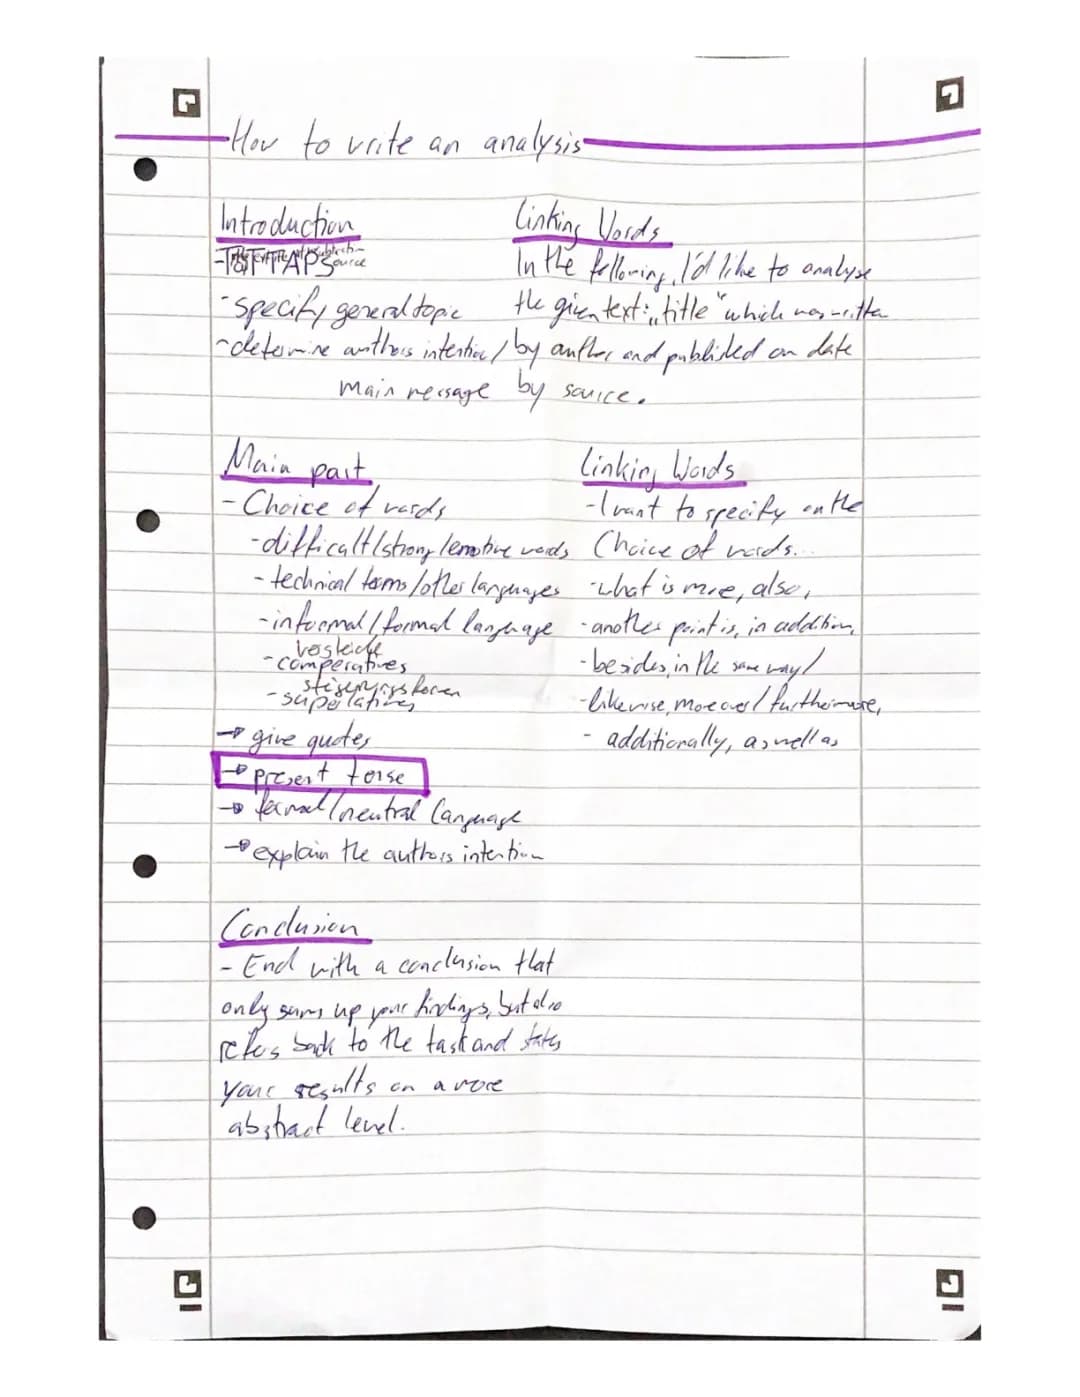 How to write an analysis
Introduction
-TSTTAPS source
-specify general topic
-determine authors intention/
main message
Linking Words
In the following, I'd like to analyse
the given text: „title" which was written
by author and published on date
by source.
Main part
- Choice of words
-difficult/strong/emotive words
- technical terms/other languages
-informal/formal language
Vergleiche
- comperatives
steigerungsformen
- superlatives
→ give quotes
→ present tense
→ formal/neutral language
→ explain the authors intention
Linking Words
-I want to specify on the
Choice of words...
-what is more, also,
-another point is, in addition,
-besides, in the same way/
-likewise, moreover/furthermore,
- additionally, as well as
Conclusion
- End with a conclusion that
only sums up your findings, but also
refers back to the task and states
your results on a more
abstract level.